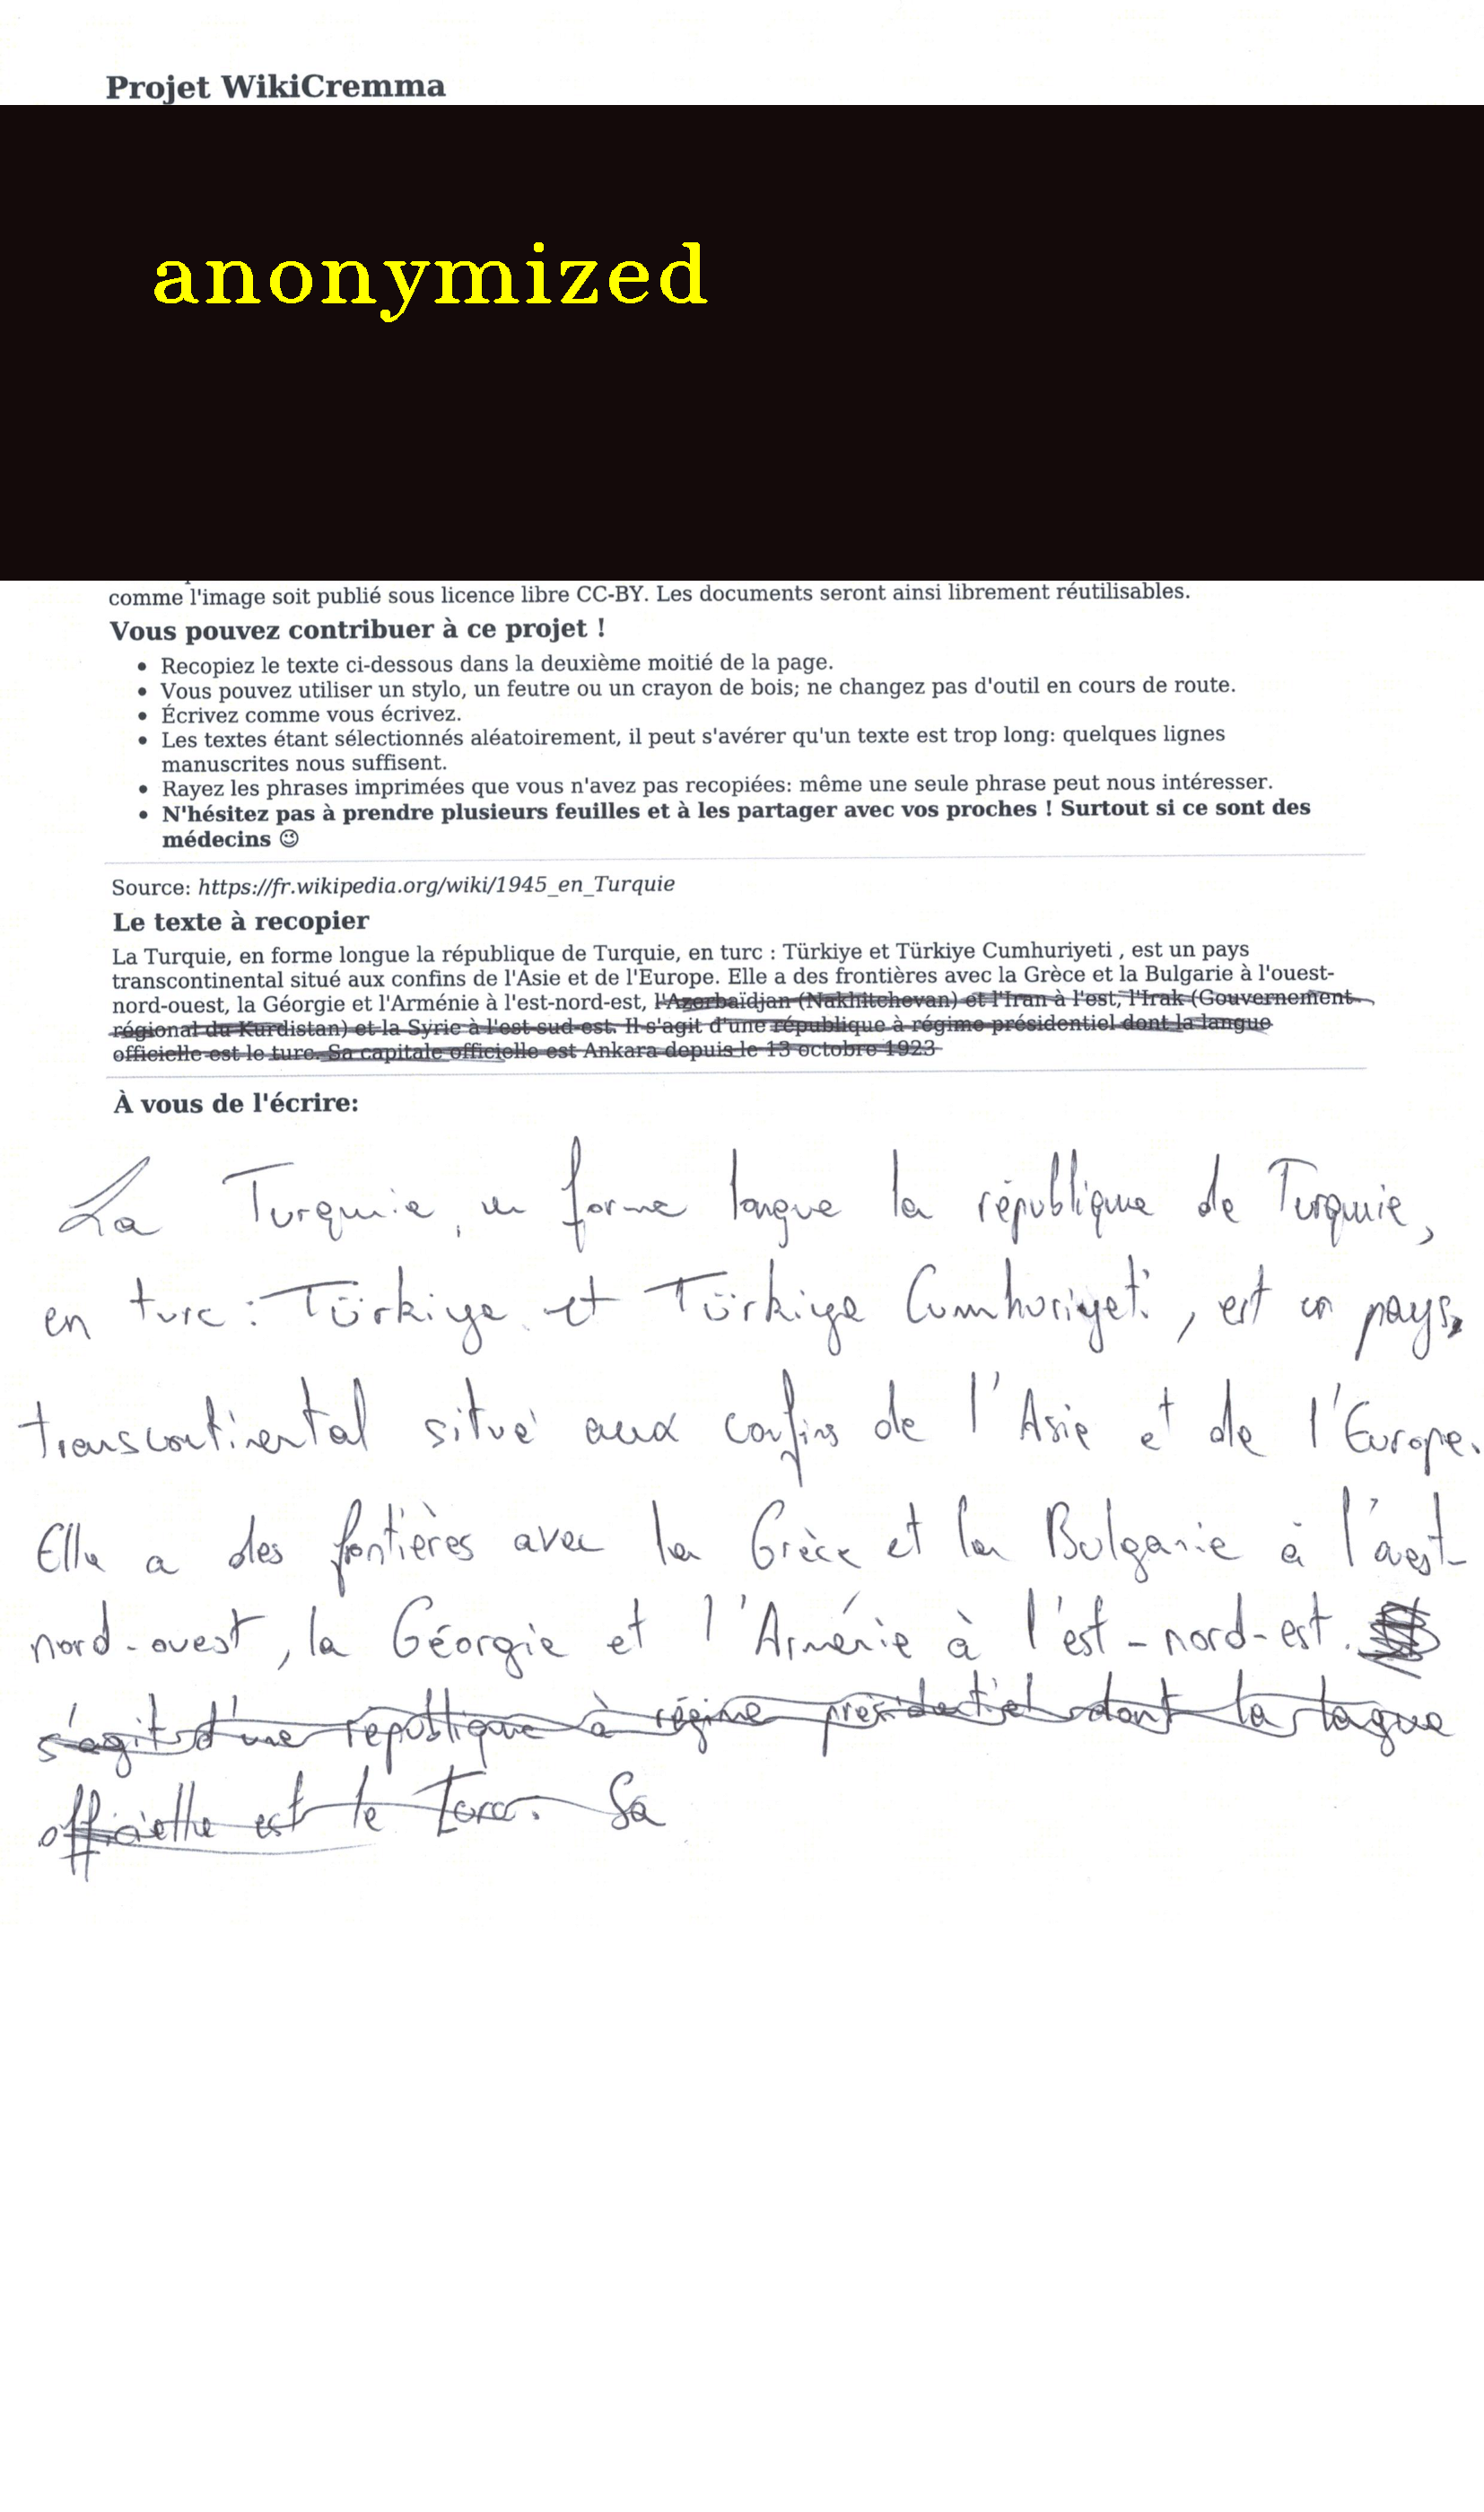 Projet WikiCremma
anonymized
comme l'image soit publié sous licence libre CC-BY. Les documents seront ainsi librement réutilisables.
Vous pouvez contribuer à ce projet !
• Recopiez le texte ci-dessous dans la deuxième moitié de la page.
• Vous pouvez utiliser un stylo, un feutre ou un crayon de bois; ne changez pas d'outil en cours de route.
• Écrivez comme vous écrivez.
• Les textes étant sélectionnés aléatoirement, il peut s'avérer qu'un texte est trop long: quelques lignes
manuscrites nous suffisent.
• Rayez les phrases imprimées que vous n'avez pas recopiées: même une seule phrase peut nous intéresser.
• N'hésitez pas à prendre plusieurs feuilles et à les partager avec vos proches ! Surtout si ce sont des
médecins 😉
Source: https://fr.wikipedia.org/wiki/1945_en_Turquie
Le texte à recopier
La Turquie, en forme longue la république de Turquie, en turc : Türkiye et Türkiye Cumhuriyeti , est un pays
transcontinental situé aux confins de l'Asie et de l'Europe. Elle a des frontières avec la Grèce et la Bulgarie à l'ouest-
nord-ouest, la Géorgie et l'Arménie à l'est-nord-est, l'Azerbaïdjan (Nakhitchevan) et l'Iran à l'est, l'Irak (Gouvernement
régional du Kurdistan) et la Syrie à l'est-sud-est. Il s'agit d'une république à régime présidentiel dont la langue
officielle est le turc. Sa capitale officielle est Ankara depuis le 13 octobre 1923
À vous de l'écrire:
La Turquie, en forme longue la république de Turquie,
en turc : Türkiye et Türkiye Cumhuriyeti, est un pays
transcontinental situé aux confins de l'Asie et de l'Europe.
Elle a des frontières avec la Grèce et la Bulgarie à l'ouest-
nord-ouest, la Géorgie et l'Arménie à l'est-nord-est.
s'agit d'une république à régime présidentiel dont la lague
officielle est le turc. Sa